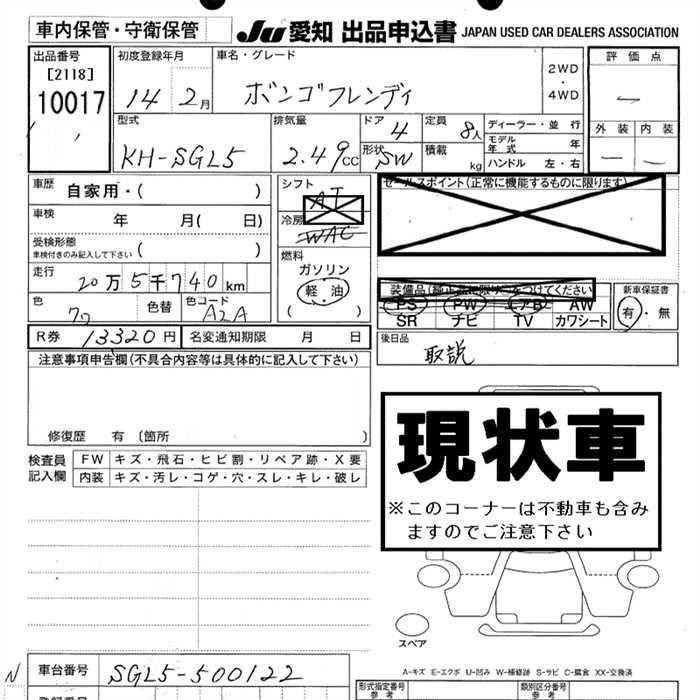 車内保管・守衛保管
JU 愛知 出品申込書 JAPAN USED CAR DEALERS ASSOCIATION
出品番号
[2118]
10017
初度登録年月
14年2月
車名・グレード
ボンゴフレンディ
2WD
・
4WD
評価点
—
外装 内装
— —
型式
KH-SGL5
排気量
2.49cc
ドア
4
形状
SW
定員
8人
積載
kg
ディーラー・並行
モデル年式 年
ハンドル 左・右
車歴 自家用・( )
車検 年 月( 日)
受検形態
車検付きのみ記入して下さい ( )
走行 20万5千740km
色
色替
色コード
A2A
シフト
AT
冷房
WAC
燃料
ガソリン
軽油
セールスポイント(正常に機能するものに限ります)
装備品(純正品に限り○をつけてください)
PS PW エアB AW
SR ナビ TV カワシート
新車保証書
有・無
R券 13320円
名変通知期限 月 日
後日品
取説
注意事項申告欄(不具合内容等は具体的に記入して下さい)
修復歴 有 〔箇所 〕
現状車
※このコーナーは不動車も含み
ますのでご注意下さい
検査員
記入欄
FW キズ・飛石・ヒビ割・リペア跡・X要
内装 キズ・汚レ・コゲ・穴・スレ・キレ・破レ
スペア
A-キズ E-エクボ U-凹み W-補修跡 S-サビ C-腐食 XX-交換済
N
車台番号 SGL5-500122
形式指定番号
参考
類別区分番号
参考